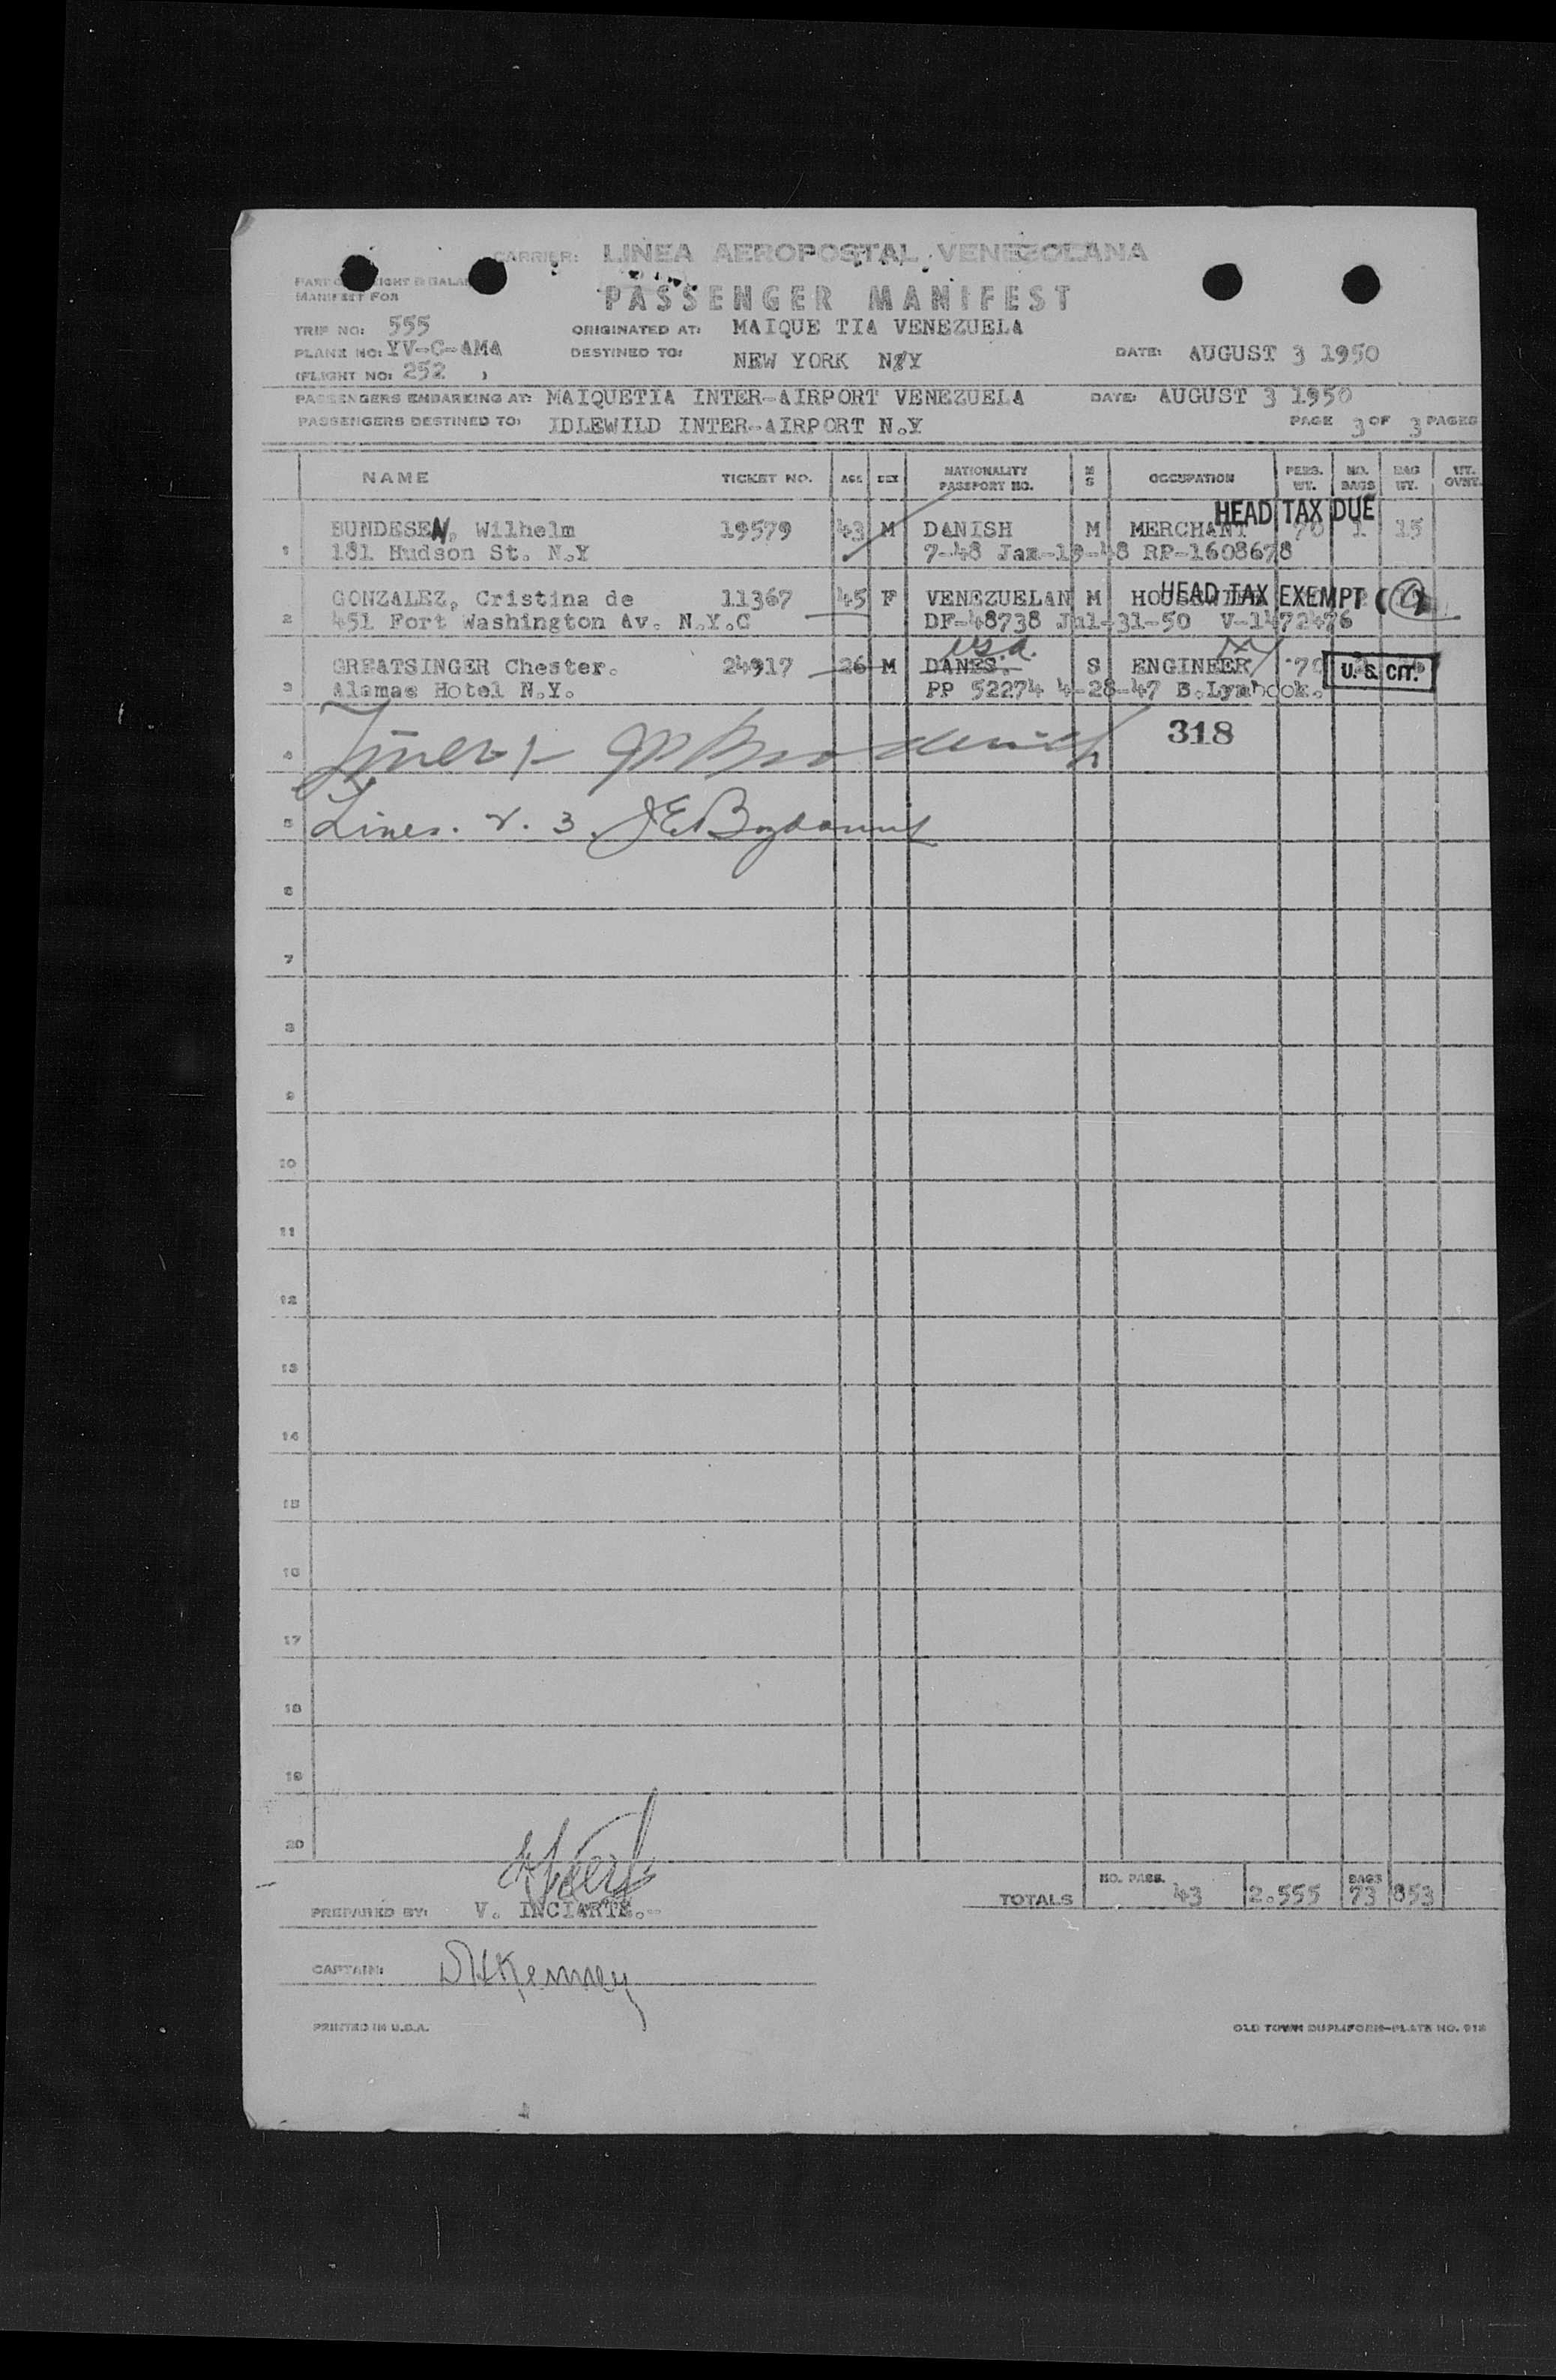 CARRIER: LINEA AEROPOSTAL VENEZOLANA
MANIFEST FOR
PASSENGER MANIFEST
TRIP NO: 555 ORIGINATED AT: MAIQUE TIA VENEZUELA
PLANE NO: YV-C-AMA DESTINED TO: NEW YORK N.Y DATE: AUGUST 3 1950
(FLIGHT NO: 252 )
PASSENGERS EMBARKING AT: MAIQUETIA INTER-AIRPORT VENEZUELA DATE: AUGUST 3 1950
PASSENGERS DESTINED TO: IDLEWILD INTER-AIRPORT N.Y PAGE 3 OF 3 PAGES
NAME TICKET NO. AGE SEX NATIONALITY PASSPORT NO. M S OCCUPATION PERS. WT. NO. BAGS BAG WT. WT. OVNT.
HEAD TAX DUE
BUNDESEN, Wilhelm 19579 43 M DANISH M MERCHANT 70 1 15
1 181 Hudson St. N.Y 7-48 Jan-19-48 RP-1608678
GONZALEZ, Cristina de 11367 45 F VENEZUELAN M HEAD TAX EXEMPT
2 451 Fort Washington Av. N.Y.C DF-48738 Jul-31-50 V-1472476
usa.
GREATSINGER Chester. 24917 26 M DANES. S ENGINEER 70 U. S. CIT.
3 Alamac Hotel N.Y. PP 52274 4-28-47 E.Lynbook.
318
4
5 Lines. 2. 3.
6
7
8
9
10
11
12
13
14
15
16
17
18
19
20
TOTALS NO. PASS. 43 2.555 BAGS 73 853
PREPARED BY: V. INCIARTE.-
CAPTAIN: DHKenney
PRINTED IN U.S.A. OLD TOWN DUPLIFORM-PLATE NO. 918